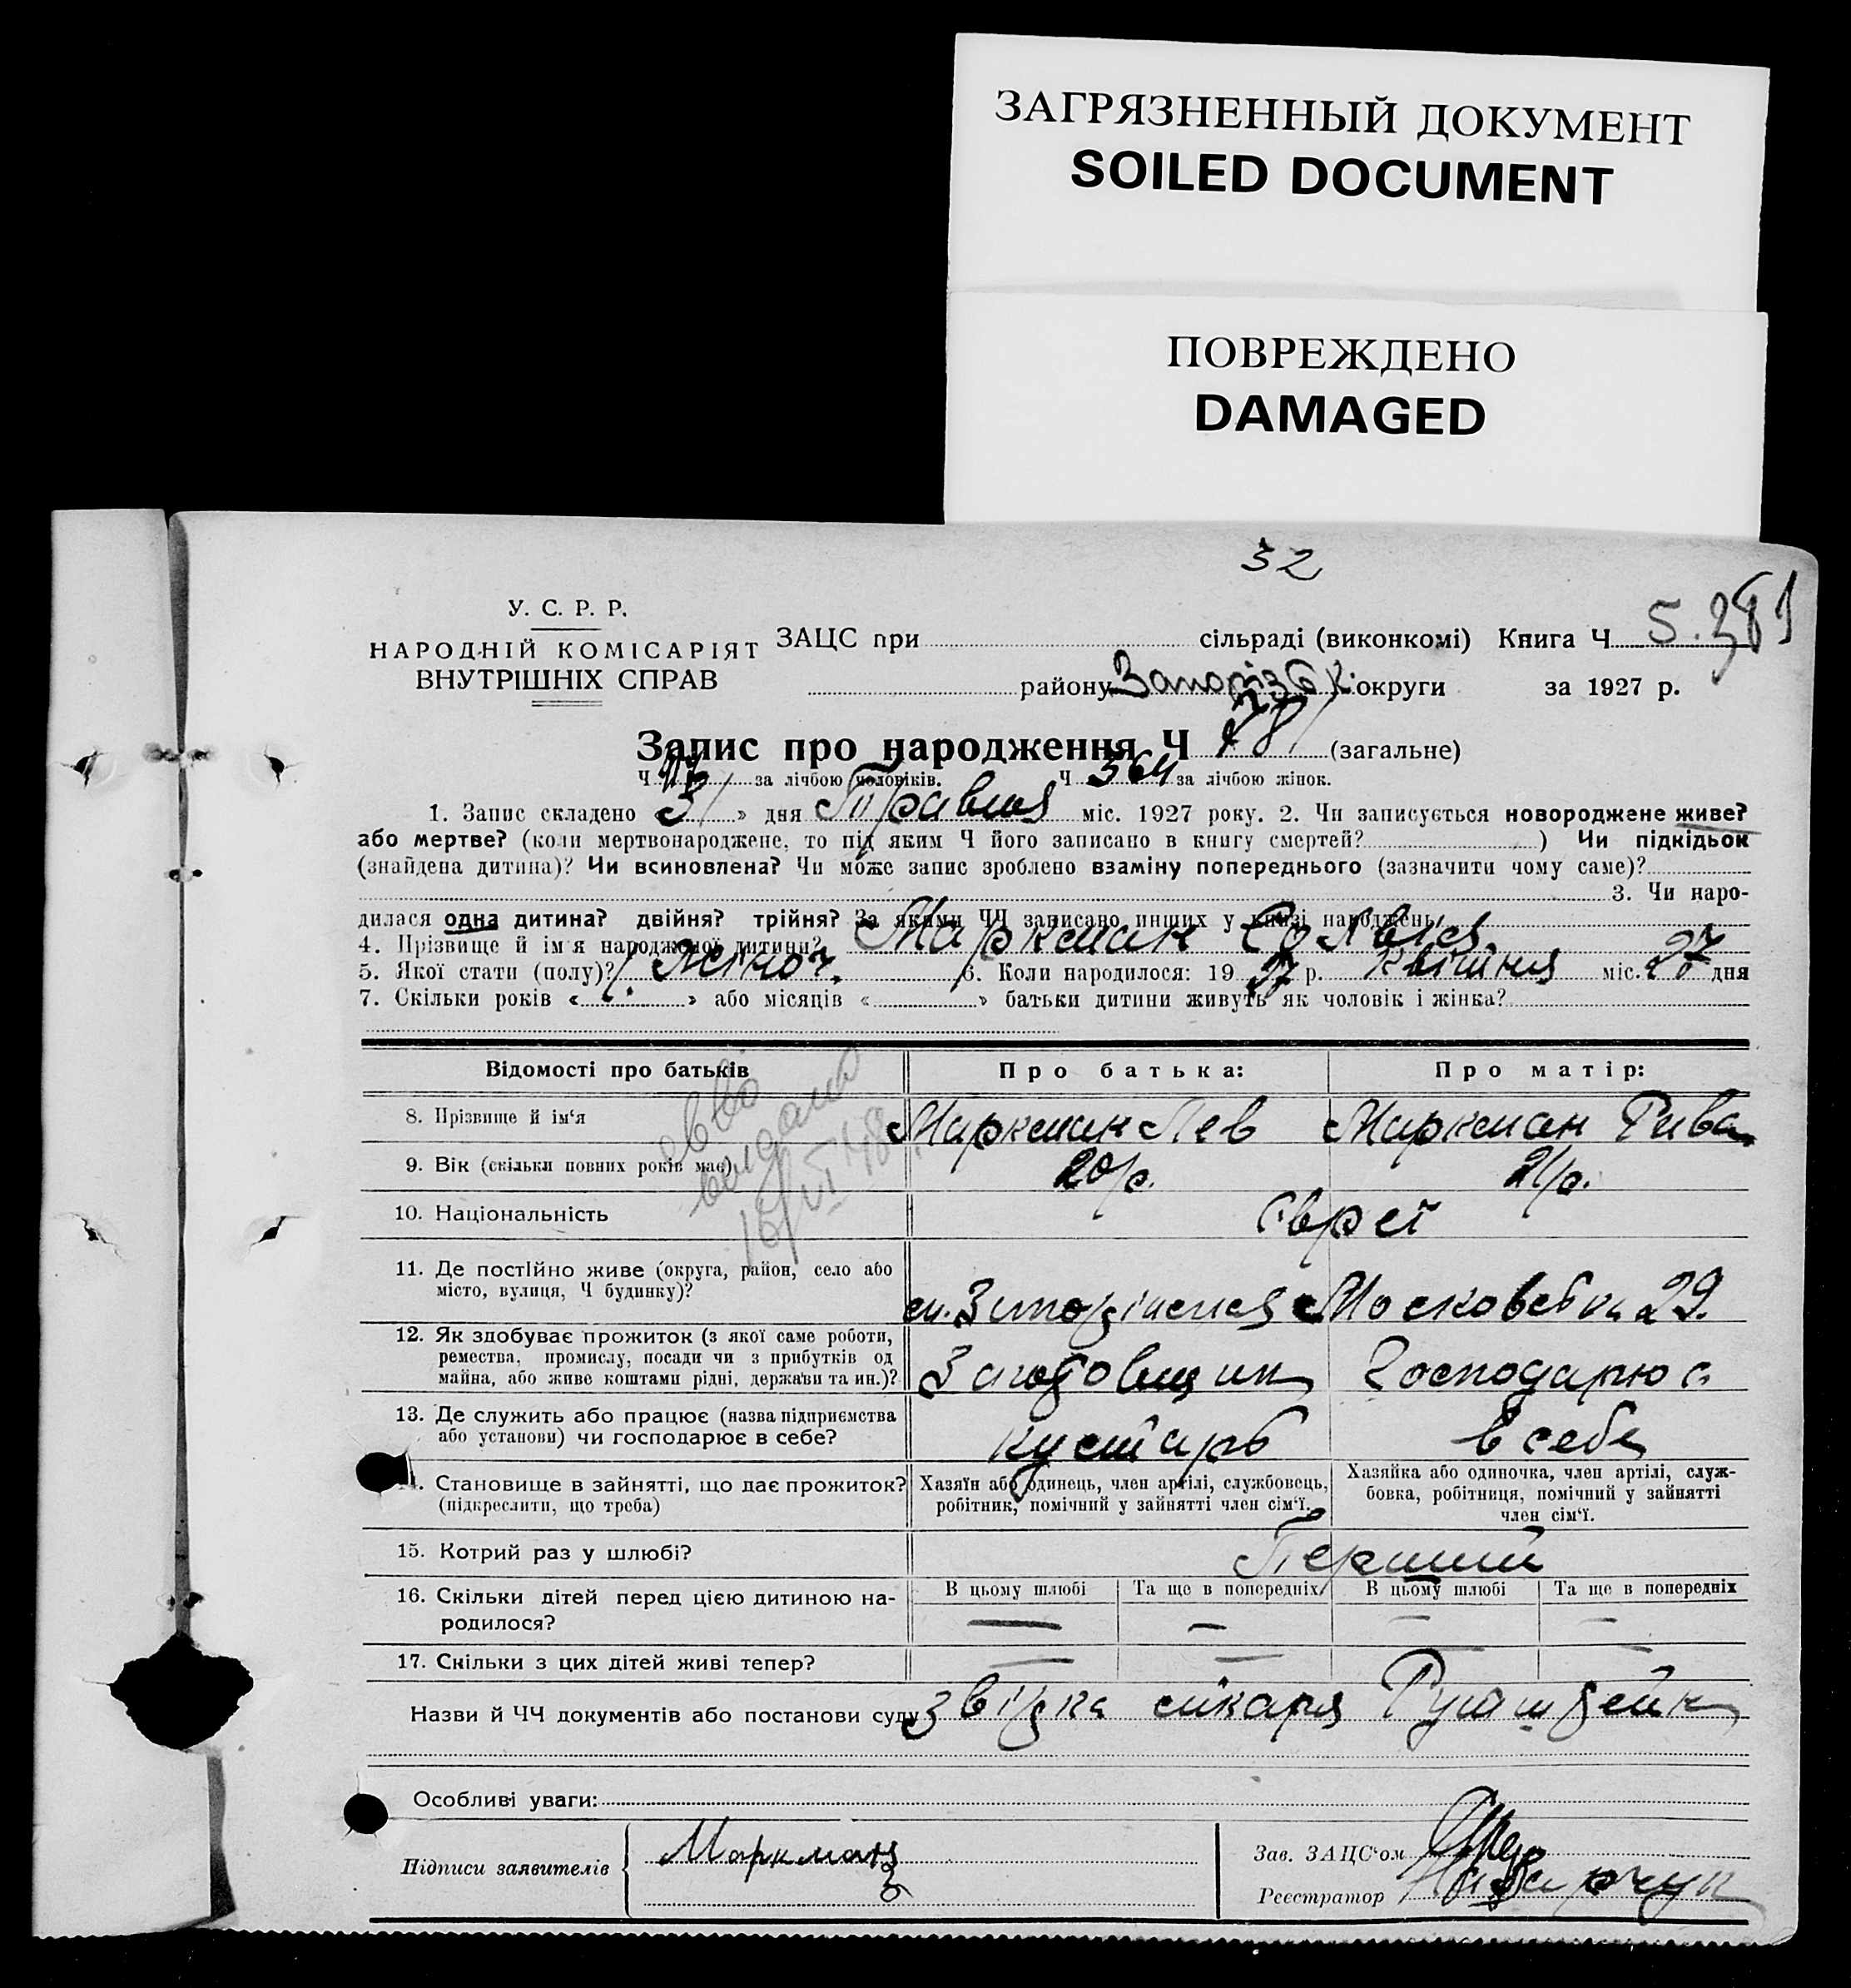 ЗАГРЯЗНЕННЫЙ ДОКУМЕНТ
SOILED DOCUMENT
ПОВРЕЖДЕНО
DAMAGED
32
У. С. Р. Р.
НАРОДНІЙ КОМІСАРІЯТ
ВНУТРІШНІХ СПРАВ
ЗАЦС при сільраді (виконкомі) Книга Ч 5.381
району Запорізьк. округи за 1927 р.
Запис про народження Ч 781 (загальне)
Ч за лічбою чоловіків. Ч 364 за лічбою жінок.
1. Запис складено 3/ » дня Травня міс. 1927 року. 2. Чи записується новороджене живе?
або мертве? (коли мертвонароджене, то під яким Ч його записано в книгу смертей? ) Чи підкідьок
(знайдена дитина)? Чи всиновлена? Чи може запис зроблено взаміну попереднього (зазначити чому саме)?
3. Чи наро-
дилася одна дитина? двійня? трійня? За якими ЧЧ записано инших у книзі народжень
4. Прізвище й ім'я народженої дитини? Маркман
5. Якої стати (полу)? Жіноч. 6. Коли народилося: 19 27 р. Квітня міс. 27 дня
7. Скільки років « » або місяців « » батьки дитини живуть як чоловік і жінка?
Відомості про батьків Про батька: Про матір:
8. Прізвище й ім'я Маркман Лев Маркман Рива
9. Вік (скільки повних років має) 20/р. 21/р.
10. Національність Євреї
11. Де постійно живе (округа, район, село або
місто, вулиця, Ч будинку)? м. Запоріжжя Московська 29.
12. Як здобуває прожиток (з якої саме роботи,
ремества, промислу, посади чи з прибутків од
майна, або живе коштами рідні, держави та ин.)? Заготовщик Господарює
13. Де служить або працює (назва підприємства
або установи) чи господарює в себе? кустарь в себе
Становище в зайнятті, що дає прожиток?
(підкреслити, що треба)
Хазяїн або одинець, член артілі, службовець,
робітник, помічний у зайнятті член сім'ї.
Хазяйка або одиночка, член артілі, служ-
бовка, робітниця, помічний у зайнятті
член сім'ї.
15. Котрий раз у шлюбі? Перший
16. Скільки дітей перед цією дитиною на-
родилося?
В цьому шлюбі Та ще в попередніх В цьому шлюбі Та ще в попередніх
— — — —
17. Скільки з цих дітей живі тепер? — — — —
Назви й ЧЧ документів або постанови суду звідка лікаря
Особливі уваги:
Підписи заявителів Маркман
Зав. ЗАЦС'ом
Реєстратор